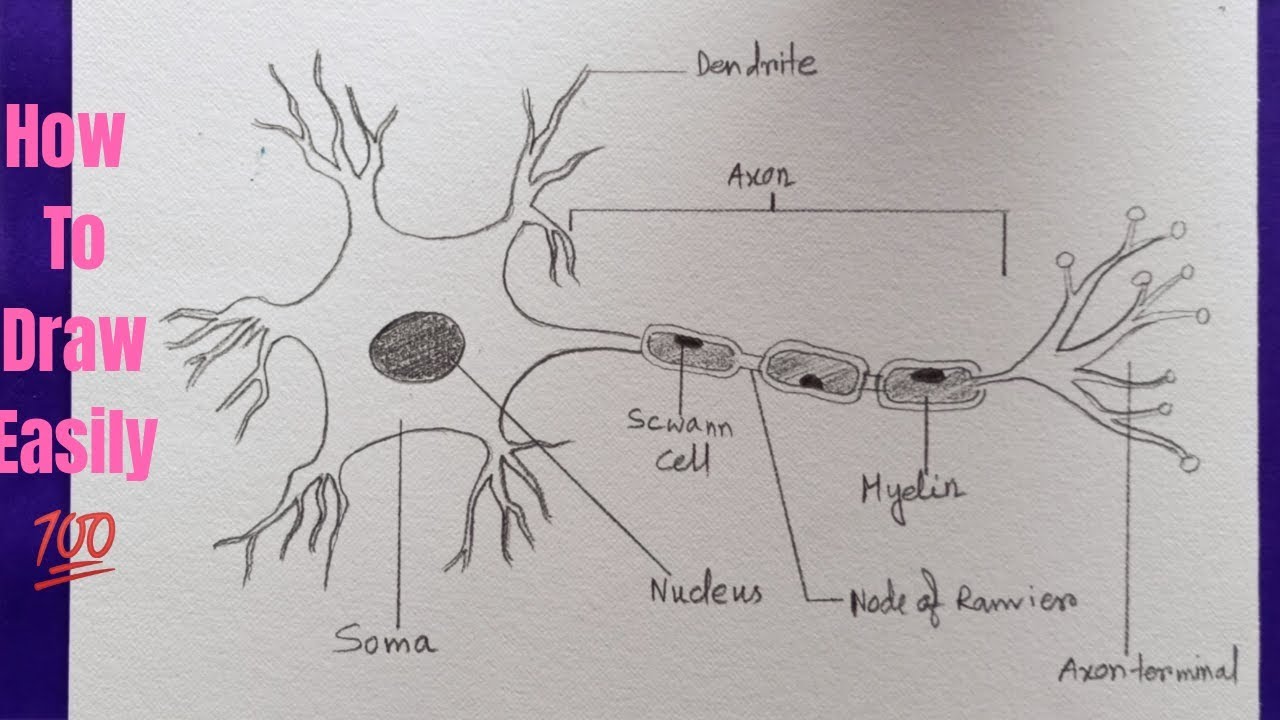 How
To
Draw
Easily
💯
Dendrite
Axon
Scwann
Cell
Myelin
Nucleus
Node of Ranvier
Soma
Axon terminal